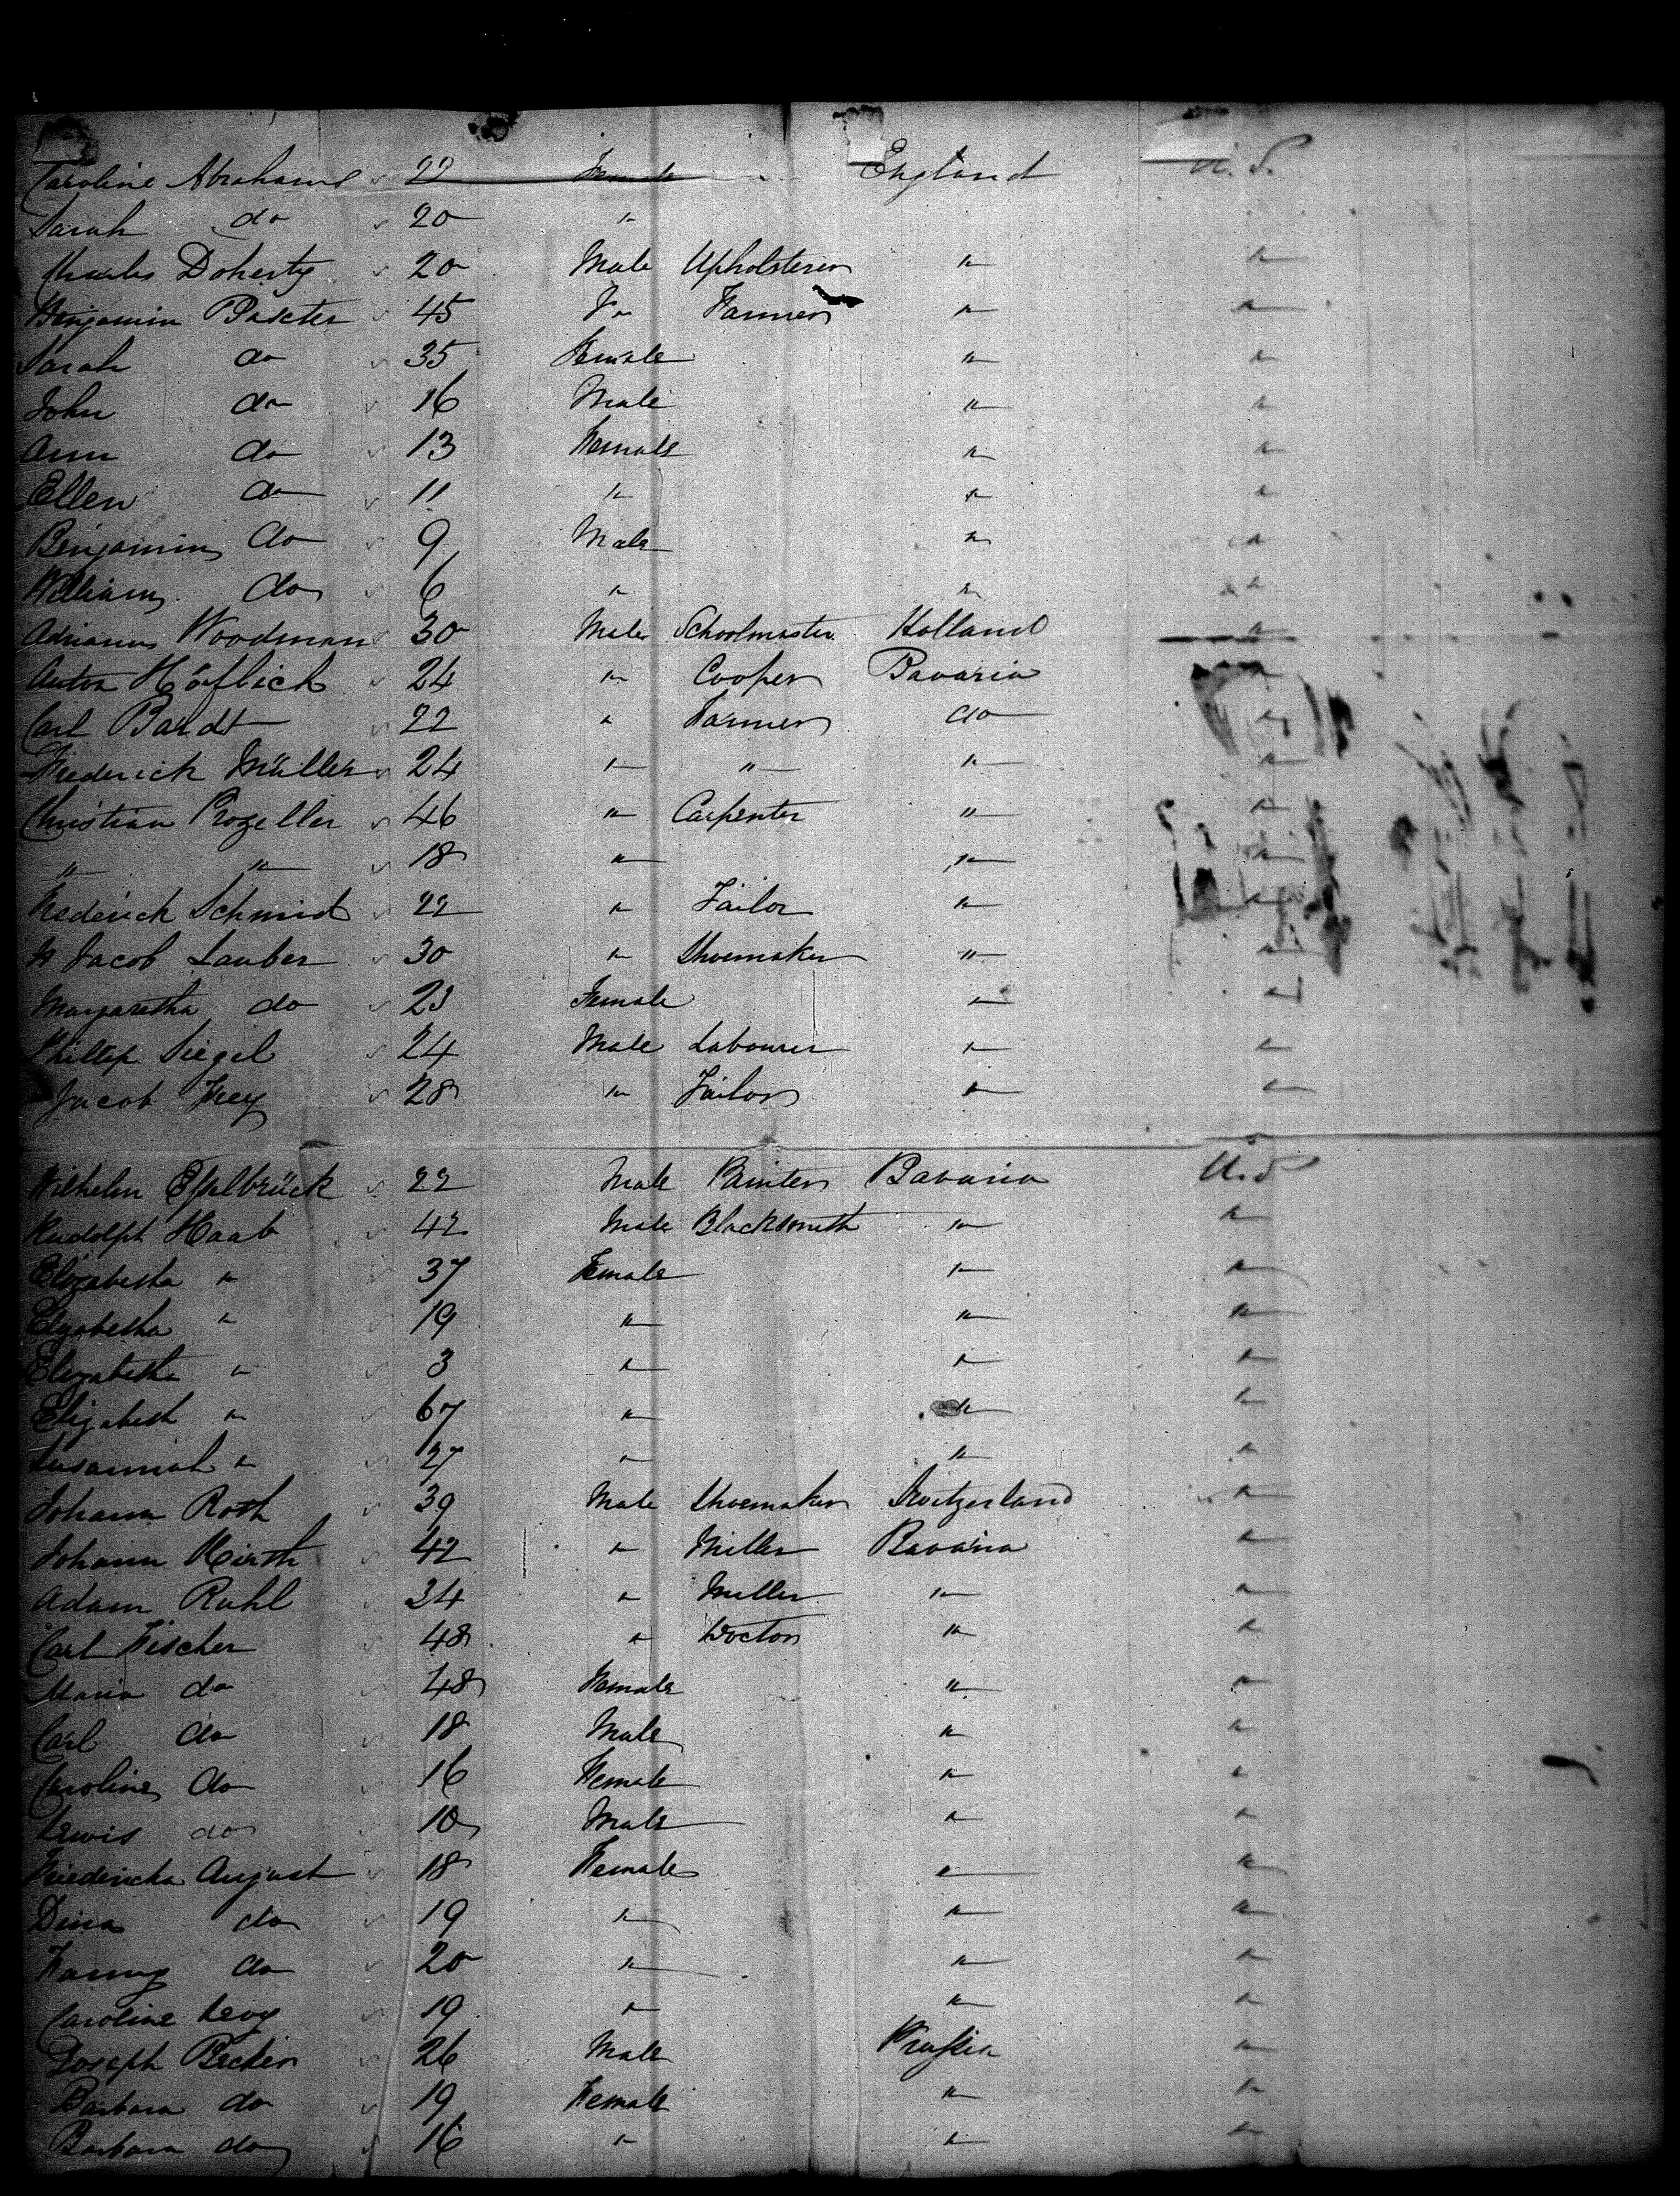 Caroline Abrahams 22 Female England U.S.
Sarah do 20 "
Charles Doherty 20 Male Upholsterer " "
Benjamin Baxter 45 Do Farmer " "
Sarah do 35 Female " "
John do 16 Male " "
Ann do 13 Female " "
Ellen do 11 " " "
Benjamin do 9 Male " "
William do 6 " " "
Adrianus Woodman 30 Male Schoolmaster Holland "
Anton Höflich 24 " Cooper Bavaria "
Carl Bardt 22 " Farmer do "
Frederick Müller 24 " " " "
Christian Prozeller 46 " Carpenter " "
" " 18 " " "
Frederick Schmid 22 " Tailor " "
Jacob Lauber 30 " Shoemaker " "
Margaretha do 23 Female " "
Phillip Siegel 24 Male Labourer " "
Jacob Frey 28 " Tailor " "
Wilhelm 22 Male Painter Bavaria U.S
Rudolph Haab 42 Male Blacksmith " "
Elizabetha " 37 Female " "
Elizabetha " 19 " " "
Elizabetha " 3 " " "
Elizabeth " 67 " " "
Susannah " 27 " " "
Johann Roth 39 Male Shoemaker Switzerland "
Johann Hirth 42 " Miller Bavaria "
Adam Ruhl 34 " Miller " "
Carl Fischer 48 " Doctor " "
Maria do 48 Female " "
Carl do 18 Male " "
Caroline do 16 Female " "
Lewis do 10 Male " "
Friedericka August 18 Female " "
Dina do 19 " " "
Fanny do 20 " " "
Caroline Levy 19 " " "
Joseph Becker 26 Male Prussia "
Barbara do 19 Female " "
Barbara do 16 " " "